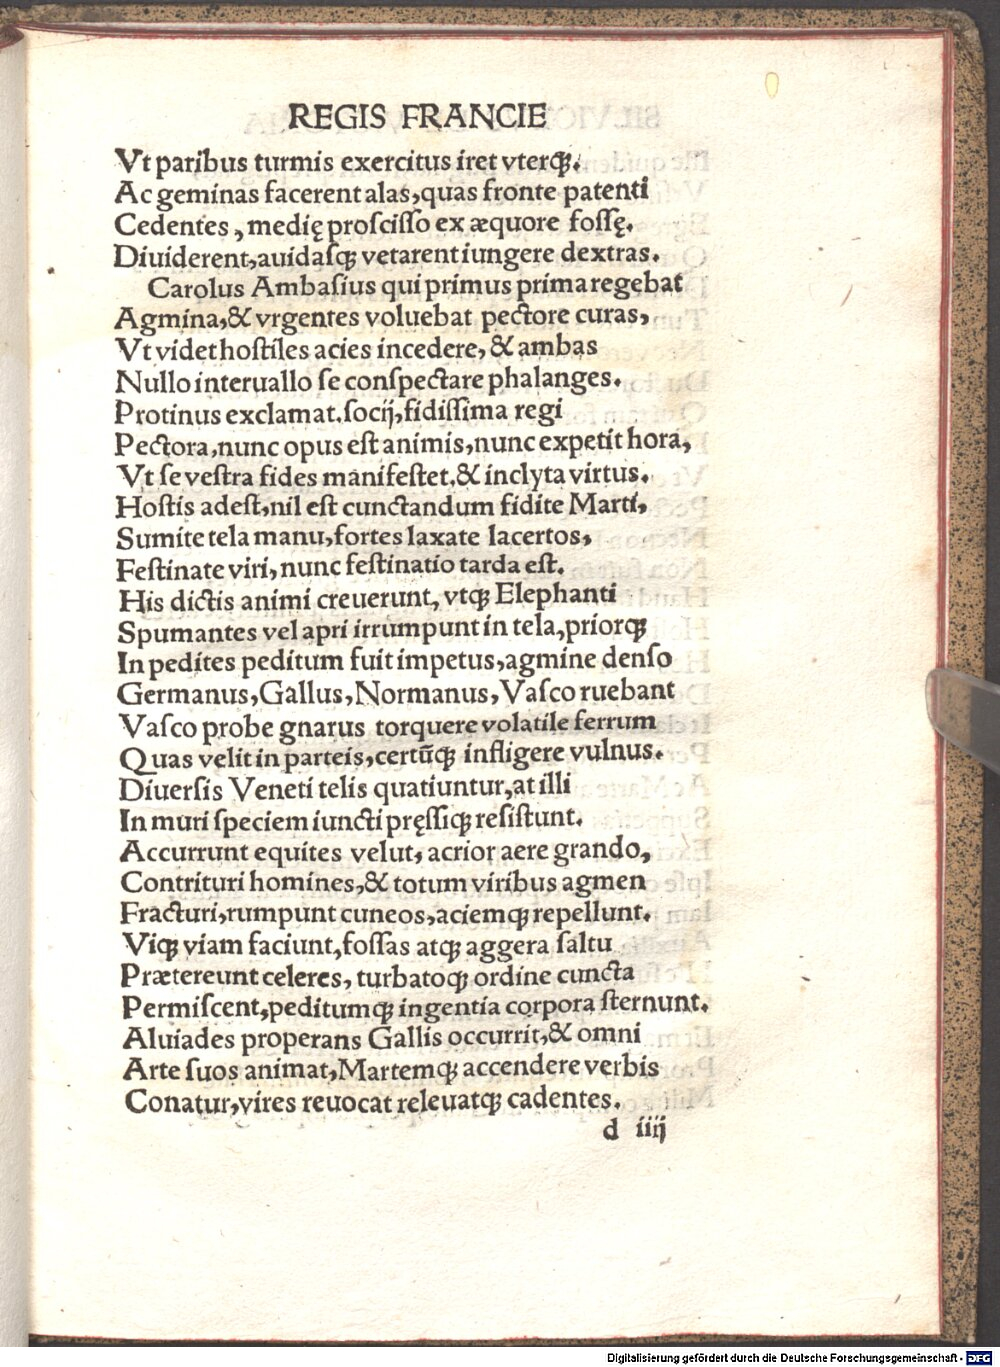 REGIS FRANCIE
Vt paribus turmis exercitus iret vterqꝫ.
Ac geminas facerent alas,quas fronte patenti
Cedentes, medię proſciſſo ex æquore foſſę.
Diuiderent,auidaſqꝫ vetarent iungere dextras.
Carolus Ambaſius qui primus prima regebat
Agmina,& vrgentes voluebat pectore curas,
Vt videt hoſtiles acies incedere, & ambas
Nullo interuallo ſe conſpectare phalanges.
Protinus exclamat.ſocij,fidiſſima regi
Pectora,nunc opus eſt animis,nunc expetit hora,
Vt ſe veſtra fides manifeſtet,& inclyta virtus.
Hoſtis adeſt,nil eſt cunctandum fidite Marti,
Sumite tela manu,fortes laxate lacertos,
Feſtinate viri,nunc feſtinatio tarda eſt.
His dictis animi creuerunt, vtqꝫ Elephanti
Spumantes vel apri irrumpunt in tela,priorqꝫ
In pedites peditum fuit impetus,agmine denſo
Germanus,Gallus,Normanus,Vaſco ruebant
Vaſco probe gnarus torquere volatile ferrum
Quas velit in parteis,certūqꝫ infligere vulnus.
Diuerſis Veneti telis quatiuntur,at illi
In muri ſpeciem iuncti pręſſiqꝫ reſiſtunt.
Accurrunt equites velut, acrior aere grando,
Contrituri homines,& totum viribus agmen
Fracturi,rumpunt cuneos,aciemqꝫ repellunt.
Viqꝫ viam faciunt,foſſas atqꝫ aggera ſaltu
Prætereunt celeres, turbatoqꝫ ordine cuncta
Permiſcent,peditumqꝫ ingentia corpora ſternunt.
Aluiades properans Gallis occurrit,& omni
Arte ſuos animat,Martemqꝫ accendere verbis
Conatur,vires reuocat releuatqꝫ cadentes.
d iiij
Digitalisierung gefördert durch die Deutsche Forschungsgemeinschaft - DFG